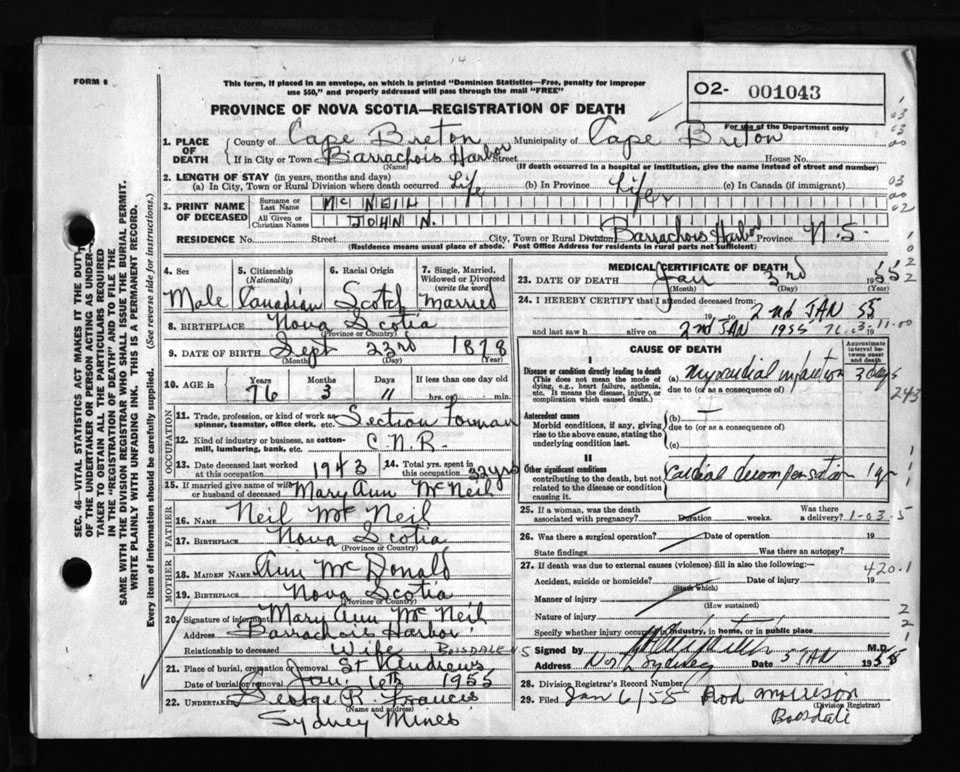 FORM 6
This form, if placed in an envelope, on which is printed "Dominion Statistics—Free, penalty for improper
use $50," and properly addressed will pass through the mail "FREE"
O2- 001043
PROVINCE OF NOVA SCOTIA—REGISTRATION OF DEATH
For use of the Department only
1. PLACE OF DEATH
County of Cape Breton Municipality of Cape Breton
If in City or Town Barrachois Harbor Street House No.
(Name) (If death occurred in a hospital or institution, give the name instead of street and number)
2. LENGTH OF STAY (in years, months and days)
(a) In City, Town or Rural Division where death occurred Life (b) In Province Life (c) In Canada (if immigrant)
3. PRINT NAME OF DECEASED
Surname or Last Name McNEIL
All Given or Christian Names JOHN N.
RESIDENCE No. Street City, Town or Rural Division Barrachois Harbor Province N.S.
(Residence means usual place of abode. Post Office Address for residents in rural parts not sufficient)
4. Sex Male
5. Citizenship (Nationality) Canadian
6. Racial Origin Scotch
7. Single, Married, Widowed or Divorced (write the word) Married
8. BIRTHPLACE Nova Scotia
(Province or Country)
9. DATE OF BIRTH Sept 23rd 1878
(Month) (Day) (Year)
10. AGE in Years Months Days If less than one day old
76 3 11 hrs. or min.
OCCUPATION
11. Trade, profession, or kind of work as spinner, teamster, office clerk, etc. Section Forman
12. Kind of industry or business, as cotton-mill, lumbering, bank, etc. C.N.R.
13. Date deceased last worked at this occupation 1943
14. Total yrs. spent in this occupation 22 yrs
15. If married give name of wife or husband of deceased Mary Ann McNeil
FATHER
16. NAME Neil McNeil
17. BIRTHPLACE Nova Scotia
(Province or Country)
MOTHER
18. MAIDEN NAME Ann McDonald
19. BIRTHPLACE Nova Scotia
(Province or Country)
20. Signature of informant Mary Ann McNeil
Address Barrachois Harbor
Relationship to deceased Wife BOISDALE N.S
21. Place of burial, cremation or removal St Andrews
Date of burial or removal Jan. 6th 1955
22. UNDERTAKER George R. Francis
(Name and address)
Sydney Mines
MEDICAL CERTIFICATE OF DEATH
23. DATE OF DEATH Jan 3rd 1955
(Month) (Day)
24. I HEREBY CERTIFY that I attended deceased from:
19 to 2nd JAN 55
and last saw h alive on 2nd JAN 1955
CAUSE OF DEATH
Approximate interval between onset and death
I
Disease or condition directly leading to death
(This does not mean the mode of dying, e.g., heart failure, asthenia, etc. It means the disease, injury, or complication which caused death.)
(a) Myocardial infarction 3 days
due to (or as a consequence of)
243
Antecedent causes
Morbid conditions, if any, giving rise to the above cause, stating the underlying condition last.
(b)
due to (or as a consequence of)
(c)
II
Other significant conditions
contributing to the death, but not related to the disease or condition causing it.
Cardiac decompensation 1 yr
25. If a woman, was the death associated with pregnancy? Duration weeks. Was there a delivery? 1-03-5
26. Was there a surgical operation? Date of operation 19
State findings Was there an autopsy?
27. If death was due to external causes (violence) fill in also the following:—
420.1
Accident, suicide or homicide? Date of injury 19
(State which)
Manner of injury
(How sustained)
Nature of injury
Specify whether injury occurred in industry, in home, or in public place
Signed by M.D.
Address North Sydney Date 5 JAN 1955
28. Division Registrar's Record Number
29. Filed Jan 6/55 Rod Morrison
(Division Registrar)
Boisdale
SEC. 46—VITAL STATISTICS ACT MAKES IT THE DUTY
OF THE UNDERTAKER OR PERSON ACTING AS UNDER-
TAKER TO OBTAIN ALL THE PARTICULARS REQUIRED
IN THE "REGISTRATION OF DEATH" AND TO FILE THE
SAME WITH THE DIVISION REGISTRAR WHO SHALL ISSUE THE BURIAL PERMIT.
WRITE PLAINLY WITH UNFADING INK. THIS IS A PERMANENT RECORD.
Every item of information should be carefully supplied. (See reverse side for instructions.)